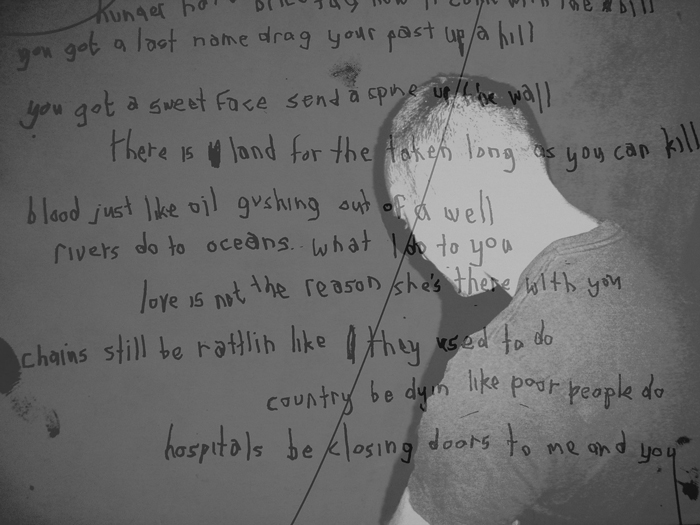 hunger
you got a last name drag your past up a hill
you got a sweet face send a spine up the wall
there is land for the taken long as you can kill
blood just like oil gushing out of a well
rivers do to oceans.. what I do to you
love is not the reason she's there with you
chains still be rattlin like they used to do
country be dyin like poor people do
hospitals be closing doors to me and you